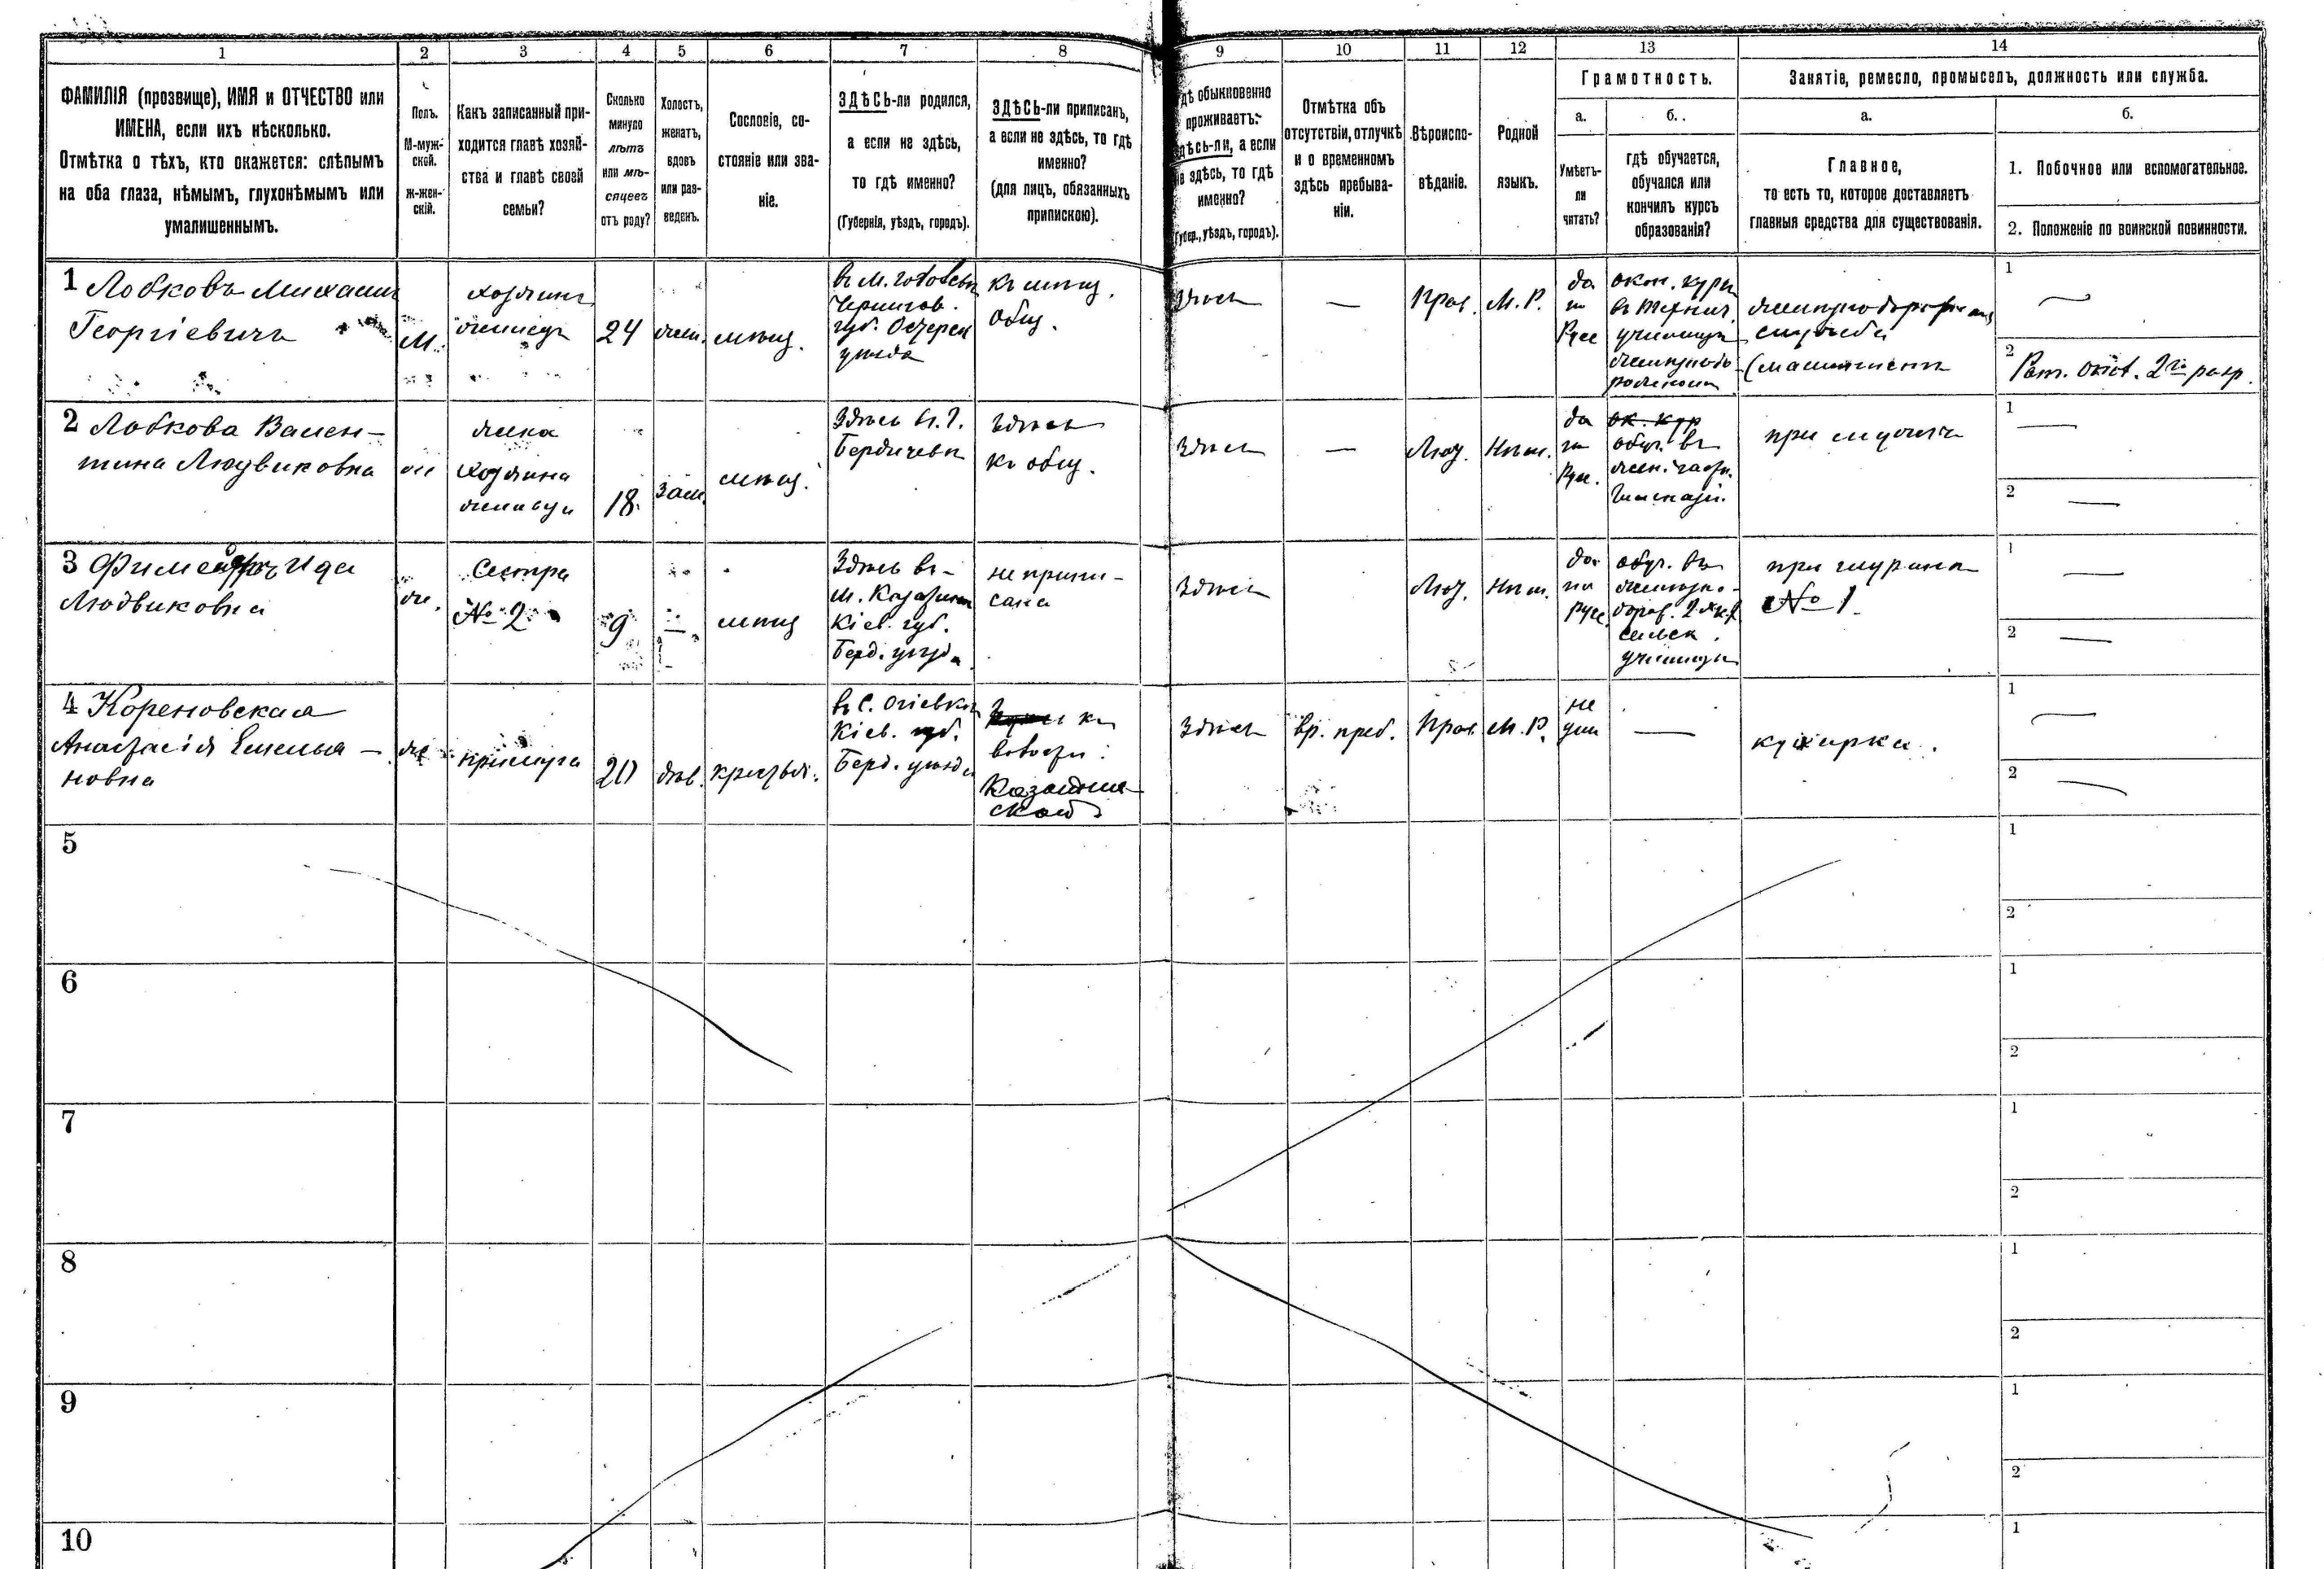 1
2
3
4
5
6
7
8
9
10
11
12
13
14
ФАМИЛІЯ (прозвище), ИМЯ и ОТЧЕСТВО или
ИМЕНА, если ихъ нѣсколько.
Отмѣтка о тѣхъ, кто окажется: слѣпымъ
на оба глаза, нѣмымъ, глухонѣмымъ или
умалишеннымъ.
Полъ.
М-муж-
ской.
Ж-жен-
скій.
Какъ записанный при-
ходится главѣ хозяй-
ства и главѣ своей
семьи?
Сколько
минуло
лѣтъ
или мѣ-
сяцевъ
отъ роду?
Холостъ,
женатъ,
вдовъ
или раз-
веденъ.
Сословіе, со-
стояніе или зва-
ніе.
ЗДѢСЬ-ли родился,
а если не здѣсь,
то гдѣ именно?
(Губернія, уѣздъ, городъ).
ЗДѢСЬ-ли приписанъ,
а если не здѣсь, то гдѣ
именно?
(для лицъ, обязанныхъ
припискою).
гдѣ обыкновенно
проживаетъ:
здѣсь-ли, а если
не здѣсь, то гдѣ
именно?
(Губер., уѣздъ, городъ).
Отмѣтка объ
отсутствіи, отлучкѣ
и о временномъ
здѣсь пребыва-
ніи.
Вѣроиспо-
вѣданіе.
Родной
языкъ.
Грамотность.
а.
Умѣетъ-
ли
читать?
б.
гдѣ обучается,
обучался или
кончилъ курсъ
образованія?
Занятіе, ремесло, промыселъ, должность или служба.
а.
Главное,
то есть то, которое доставляетъ
главныя средства для существованія.
б.
1. Побочное или вспомогательное.
2. Положеніе по воинской повинности.
1 Лобковъ Михаилъ
Георгіевичъ
М.
хозяинъ
24
жен.
мѣщ.
Чернигов.
губ. Остерск
уѣзда
къ мѣщ.
общ.
Здѣсь
—
Прав.
М. Р.
да
по
Русс
окон. курс
въ Технич.
училищѣ
желѣзнодо-
рожномъ
желѣзнодорожная
служба
(машинистъ
1 —
2 Рат. опол. 2го разр.
2 Лобкова Вален-
тина Людвиковна
ж
жена
хозяина
18.
зам.
мѣщ.
Здѣсь въ г.
Бердичевѣ
здѣсь
къ общ.
Здѣсь
—
Лют.
Нѣм.
да
по
Рус.
ок. кур
обуч. въ
жен. частн.
гимназіи.
при мужѣ
1 —
2 —
3
Ида
Людвиковна
ж.
Сестра
№ 2
9
—
мѣщ
Здѣсь въ
м. Казатинѣ
Кіев. губ.
Берд. уѣзда
не припи-
сана
Здѣсь
Лют.
Нѣм.
да
по
русс.
обуч. въ
желѣзно-
дорож. 2хкл
сельск.
училищѣ
при шуринѣ
№ 1
1 —
2 —
4 Кореновская
Анастасія Емелья-
новна
ж
прислуга
20
дѣв.
крестьян.
Кіев. губ.
Берд. уѣзда
къ
волости
Казатин-
ской
Здѣсь
вр. преб.
Прав.
М. Р.
не
ум
—
кухарка.
1 —
2 —
5
1
2
6
1
2
7
1
2
8
1
2
9
1
2
10
1